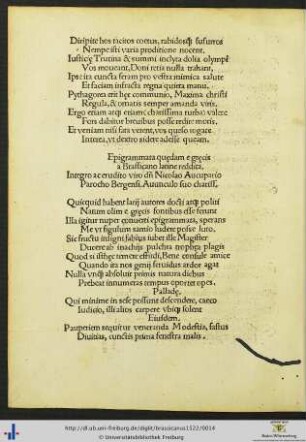 Diripite hos tacitos coetus, rabidosq; susurros
Nempe isti varia proditione nocent.
Iusticię Trutina & summi inclyta dolia olympi
Vos moueant, Doni retis nulla trahant,
Ipse ita cuncta feram pro vestra mimica salute
Et faciam infracta regna quinta manu.
Pythagorea erit hęc communio, Maxima christi
Regula, & ornatis semper amanda viris.
Ergo etiam atq; etiam; charissima turba valete
Fors dabitur breuibus posse redire moris,
Et veniam nisi fata vetent, vos quęso togate
Interea, vt dextro sidere adesse queam.
Epigrammata quędam e gręcis
a Brassicano latine reddita,
Integro ac erudito viro dñ Nicolao Aucupario
Parocho Bergensi, Auunculo suo chariss.
Quicquid habent larij autores docti atq; politi
Natum olim e gręcis fontibus esse ferunt
Illa igitur nuper conuerti epigrammata, sperans
Me vt figulum samio ludere posse luto.
Sic fructu insigni fabius iubet ille Magister
Ducere ab inachijs pulchra trophęa plagis
Quod si isthęc temere effudi, Bene consule amice
Quando ita nos genij feruidus ardor agat
Nulla vnq; absoluit primis natura diebus
Prębeat innumeras tempus oportet opes.
Palladę.
Qui minime in sese possunt descendere, cæco
Iudicio, illi alios carpere vbiq; solent
Eiusdem.
Pauperiem sequitur veneranda Modestia, fastus
Diuitias, cunctis prima fenestra malis.
http://dl.ub.uni-freiburg.de/diglit/brassicanus1522/0014
© Universitätsbibliothek Freiburg
Baden-Württemberg